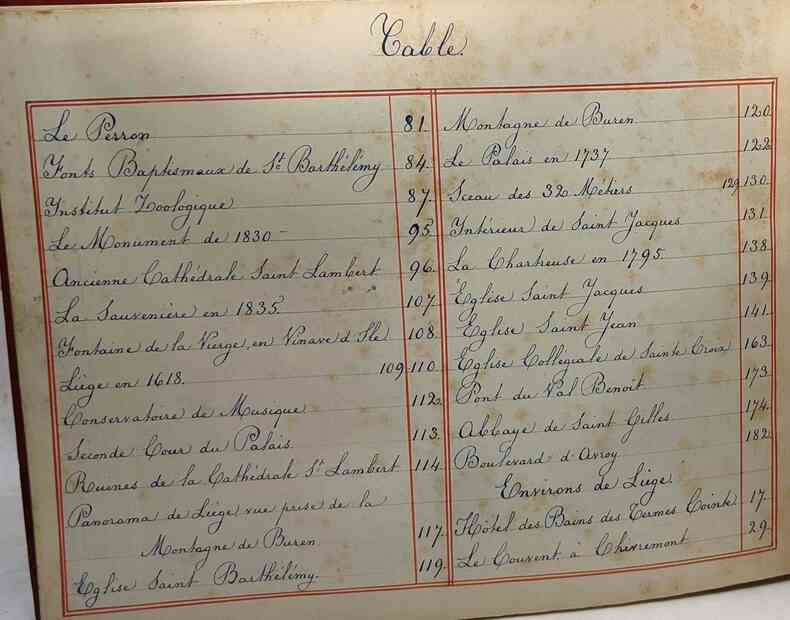 Table.
Le Perron 81.
Fonts Baptismaux de St Barthélémy 84.
Institut Zoologique 87.
Le Monument de 1830 95.
Ancienne Cathédrale Saint Lambert 96.
La Sauvenière en 1835. 107.
Fontaine de la Vierge, en Vinave d'Ile 108.
Liège en 1618. 109 110.
Conservatoire de Musique 112.
Seconde Cour du Palais. 113.
Ruenes de la Cathédrale St Lambert 114.
Panorama de Liège vue prise de la
Montagne de Buren 117.
Eglise Saint Barthélémy. 119.
Montagne de Buren 120.
Le Palais en 1737 122.
Sceau des 32 Métiers 129 130.
Intérieur de Saint Jacques 131.
La Chartreuse en 1795. 138.
Eglise Saint Jacques 139.
Eglise Saint Jean 141.
Eglise Collégiale de Sainte Croix 163.
Pont du Val Benoît 173.
Abbaye de Saint Gilles 174.
Boulevard d'Avroy 182.
Environs de Liège.
Hôtel des Bains des Termes Cointe 17.
Le Couvent à Chèvremont 29.